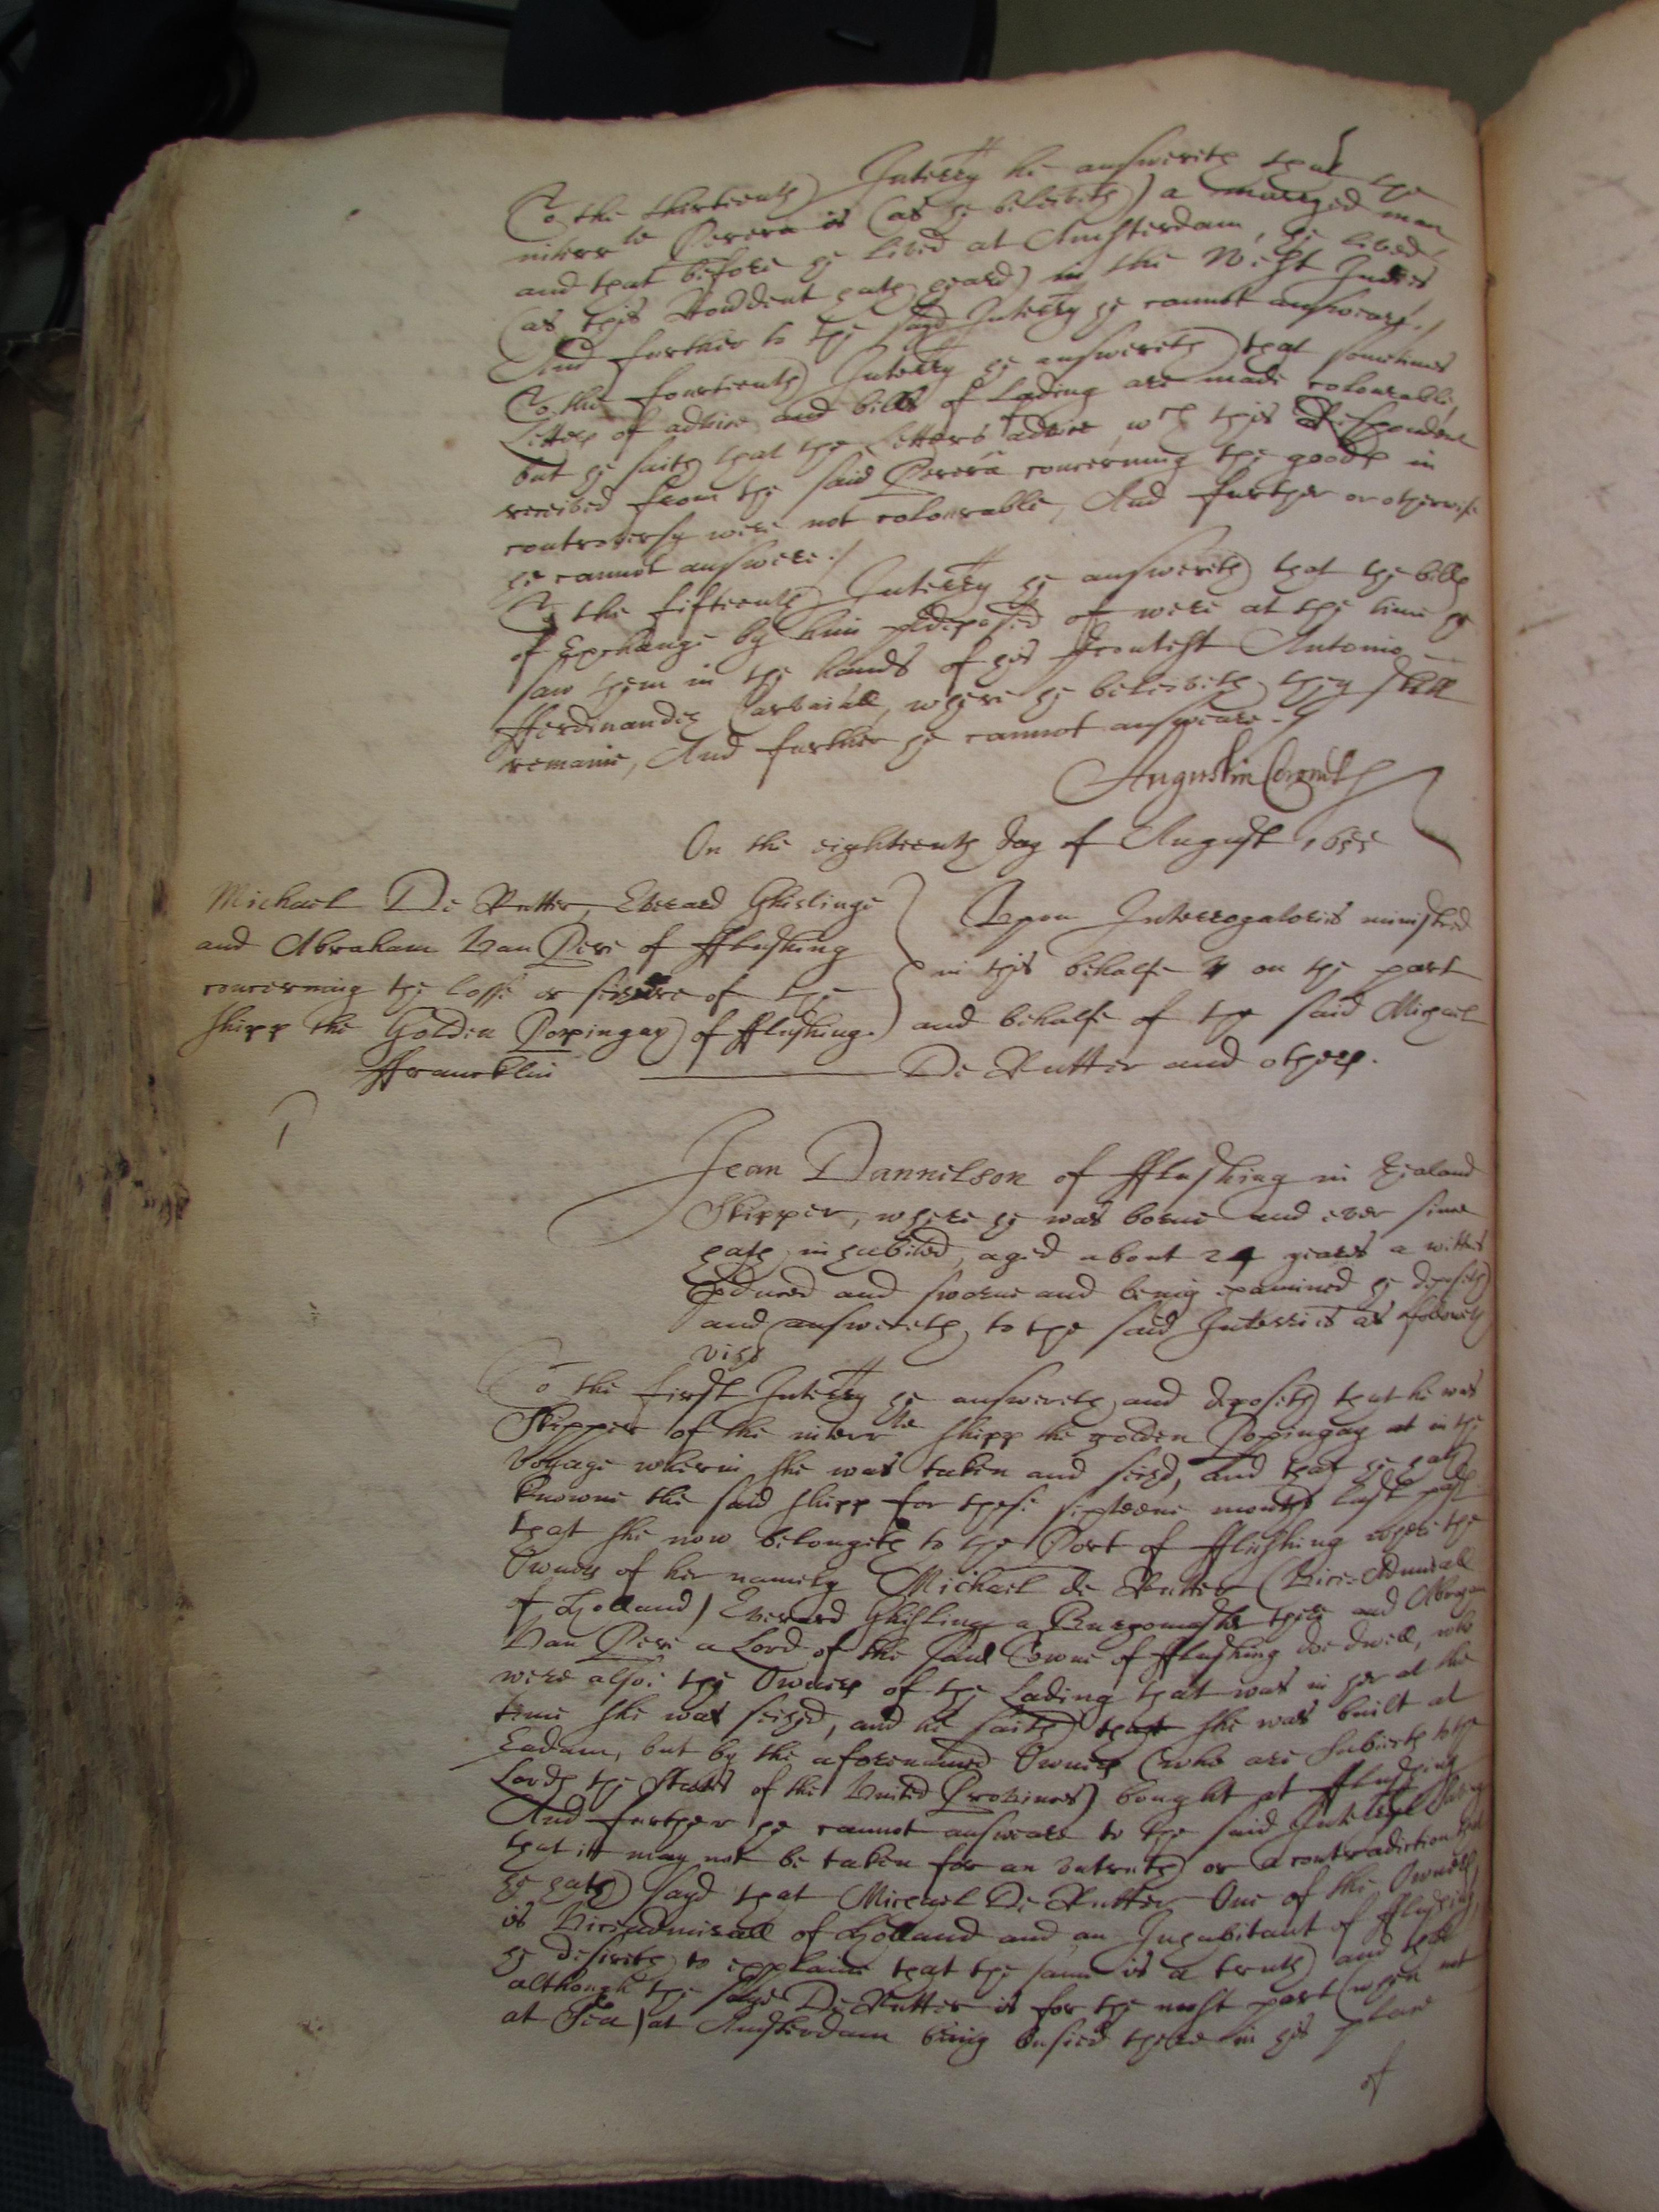 To the thirteenth Interry he answereth that the
interr te Perera is (as he beleiveth) a marryed man
and that before he lived at Amsterdam, he lived
(as this Rondent hath heard) in the West Indies
And further to the sayd Interry he cannot answeare./
To the fourteenth Interry he answereth that sometimes
Letters of advice and bills of Lading are made colourable,
but he saith that the Letters advice wch this Respondent
received from the said Perera concerning the goods in
controversy were not colourable, And further or otherwise
he cannot answere:/
To the fifteenth Interry he answereth that the bills
of Exchange by him predeposed of were at the time he
saw them in the hands of his Contest Antonio
fferdinandez Carvaihall, where he beleiveth they still
remaine, And further he cannot answeare -
Augustin Coronel
On the eighteenth day of August 1655
Michael De Rutter, Everard Ghislinge
and Abraham Van Pere of fflushing
concerning the losse or seizure of the
shipp the Golden Popingay of fflushing.
ffrancklin
Upon Interrogatories ministred
in this behalfe on the part
and behalfe of the said Michael
De Rutter and others.
1
Jean Dannelson of fflushing in Zealand
Skipper, where he was borne and ever since
hath inhabited, aged about 24 yeares a wittnes
produced and sworne and being examined he deposeth
and answereth to the said Interries as followeth
vizt
To the first Interry he answereth and deposeth that he was
Skipper of the interr te shipp the golden Popingay at in the
Voyage wherein she was taken and seizd, and that he hath
knowne the said shipp for these sixteene months last past
that she now belongeth to the Port of fflushing where the
Owners of her namely Michael de Rutter (Vice=Admirall
of Holland) Everard Ghisling a Burgomaster there and Abraham
Van Pere a Lord of the said Towne of fflushing doe dwell, who
were alsoe the Owners of the Lading that was in her at the
time she was seized, and he saith that she was built at
Eadam, but by the aforenamed Owners (who are Subiects to the
Lords the States of the United Provinces) bought at fflushing
And further he cannot answeare to the said Interry Saving
that it may not be taken for an untruth or a contradiction that
he hath sayd that Michael De Rutter One of the Owners,
is Viceadmirall of Holland and an Inhabitant of fflushing,
he desireth to explaine that the same is a truth and that
although the sayd De Rutter is for the most part (when not
at Sea) at Amsterdam being busied there in his place
of